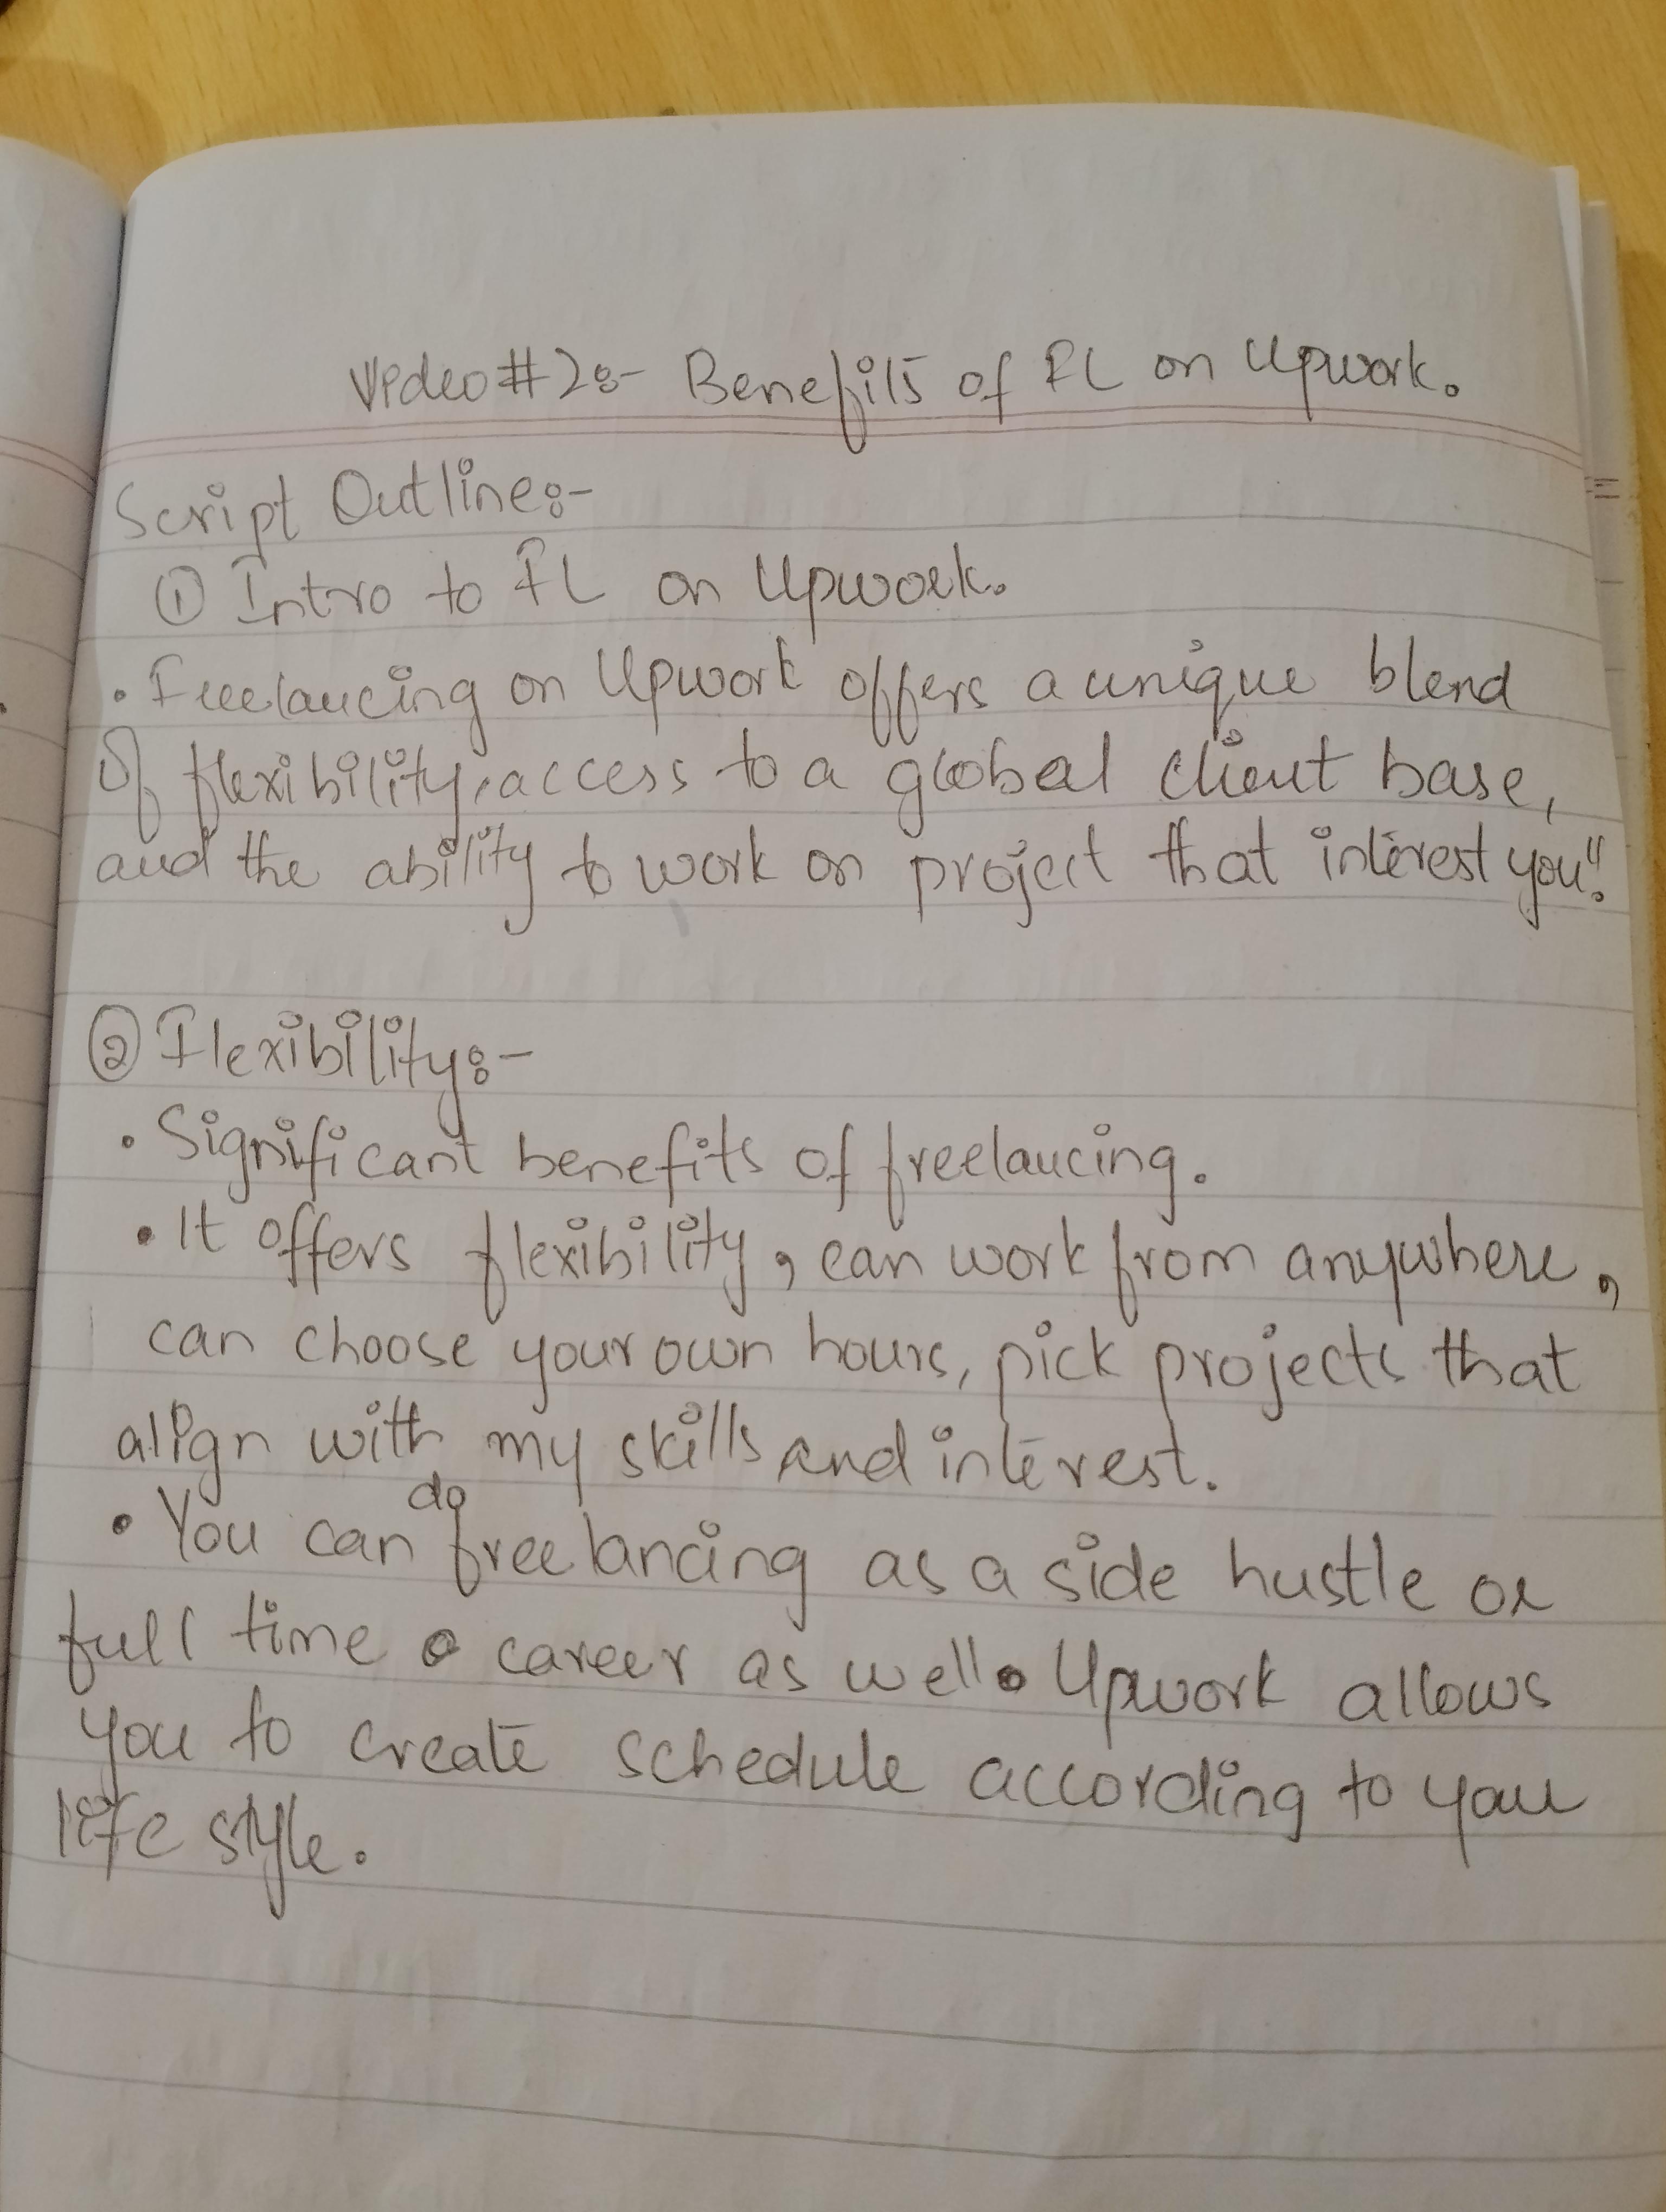 Video #2:- Benefits of FL on Upwork.
Script Outline:-
① Intro to FL on Upwork.
• Freelancing on Upwork offers a unique blend
of flexibility, access to a global client base,
and the ability to work on project that interest you".
② Flexibility:-
• Significant benefits of freelancing.
• It offers flexibility, can work from anywhere,
can choose your own hours, pick projects that
align with my skills and interest.
• You can do freelancing as a side hustle or
full time career as well. Upwork allows
you to create schedule according to your
life style.